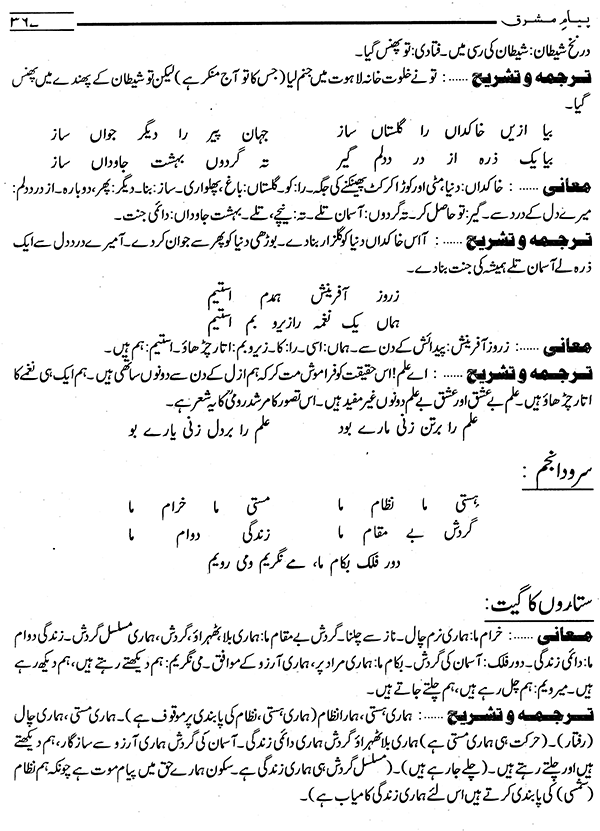 پیامِ مشرق ۳۶۷
در نخِ شیطان: شیطان کی رسی میں۔ فتادی: تو پھنس گیا۔
ترجمہ و تشریح ......: تو نے خلوت خانہ لاہوت میں جنم لیا (جس کا تو آج منکر ہے) لیکن تو شیطان کے پھندے میں پھنس
گیا۔
بیا ازیں خاکداں را گلستاں ساز جہان پیر را دیگر جواں ساز
بیا یک ذرہ از درد دلم گیر تہ گردوں بہشت جاوداں ساز
معانی ......: خاکداں: دنیا، مٹی اور کوڑا کرکٹ پھینکنے کی جگہ۔ را: کو۔ گلستاں: باغ، پھلواری۔ ساز: بنا۔ دیگر: پھر، دوبارہ۔ از درد دلم:
میرے دل کے درد سے۔ گیر: تو حاصل کر۔ تہ گردوں: آسمان تلے۔ تہ: نیچے، تلے۔ بہشت جاوداں: دائمی جنت۔
ترجمہ و تشریح ......: آ اس خاکداں دنیا کو گلزار بنا دے۔ بوڑھی دنیا کو پھر سے جوان کر دے۔ آ میرے درد دل سے ایک
ذرہ لے آسمان تلے ہمیشہ کی جنت بنا دے۔
زروز آفرینش ہمدم استیم
ہماں یک نغمہ را زیر و بم استیم
معانی ......: زروز آفرینش: پیدائش کے دن سے۔ ہماں: اسی۔ را: کا۔ زیر و بم: اتار چڑھاؤ۔ استیم: ہم ہیں۔
ترجمہ و تشریح ......: اے علم! اس حقیقت کو فراموش مت کر کہ ہم ازل کے دن سے دونوں ساتھی ہیں۔ ہم ایک ہی نغمے کا
اتار چڑھاؤ ہیں۔ علم بے عشق اور عشق بے علم دونوں غیر مفید ہیں۔ اس تصور کا مرشد رومیؒ کا یہ شعر ہے۔
علم را برتن زنی مارے بود علم را بردل زنی یارے بو
سرودِ انجم:
ہستی ما نظام ما مستی ما خرام ما
گردش بے مقام ما زندگی دوام ما
دور فلک بکام ما، مے نگریم و می رویم
ستاروں کا گیت:
معانی ......: خرام ما: ہماری نرم چال۔ ناز سے چلنا۔ گردش بے مقام ما: ہماری بلا ٹھہراؤ، گردش، ہماری مسلسل گردش۔ زندگی دوام
ما: دائمی زندگی۔ دور فلک: آسمان کی گردش۔ بکام ما: ہماری مراد پر، ہماری آرزو کے موافق۔ می نگریم: ہم دیکھتے رہتے ہیں، ہم دیکھ رہے
ہیں۔ میرویم: ہم چل رہے ہیں، ہم چلتے جاتے ہیں۔
ترجمہ و تشریح ......: ہماری ہستی، ہمارا نظام (ہماری ہستی، نظام کی پابندی پر موقوف ہے)۔ ہماری مستی، ہماری چال
(رفتار)۔ (حرکت ہی ہماری مستی ہے) ہماری بلا ٹھہراؤ گردش ہماری دائمی زندگی۔ آسمان کی گردش ہماری آرزو سے سازگار، ہم دیکھتے
ہیں اور چلتے رہتے ہیں۔ (چلے جا رہے ہیں)۔ (مسلسل گردش ہی ہماری زندگی ہے۔ سکون ہمارے حق میں پیام موت ہے چونکہ ہم نظام
(شمسی) کی پابندی کرتے ہیں اس لئے ہماری زندگی کامیاب ہے)۔